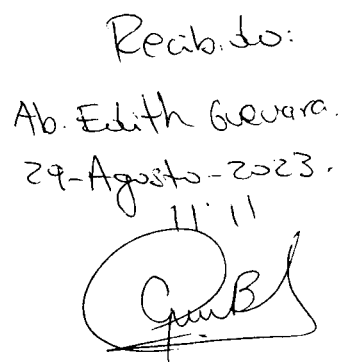 Recibido:
Ab. Edith Guevara.
29-Agosto-2023.
11:11